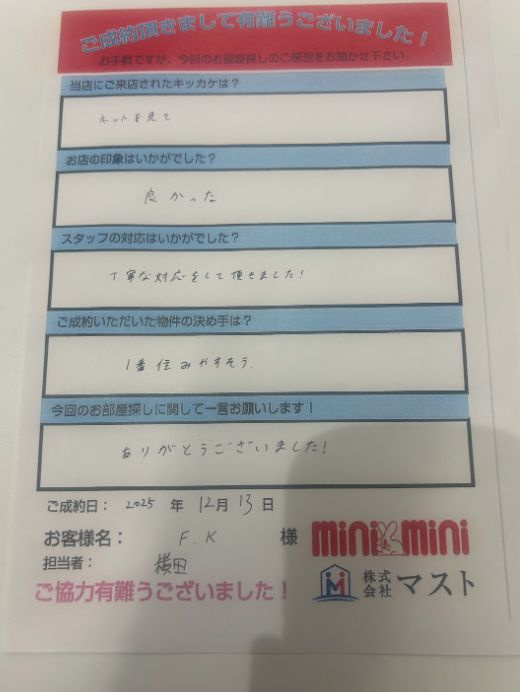 ご成約頂きまして有難うございました!
お手数ですが、今回のお部屋探しのご感想をお聞かせ下さい。
当店にご来店されたキッカケは?
ネットを見て
お店の印象はいかがでした?
良かった
スタッフの対応はいかがでした?
丁寧な対応をして頂きました!
ご成約いただいた物件の決め手は?
1番住みやすそう.
今回のお部屋探しに関して一言お願いします!
ありがとうございました!
ご成約日: 2025 年 12月 13日
お客様名: F.K 様
担当者: 横田
ご協力有難うございました!
mini mini
株式会社 マスト